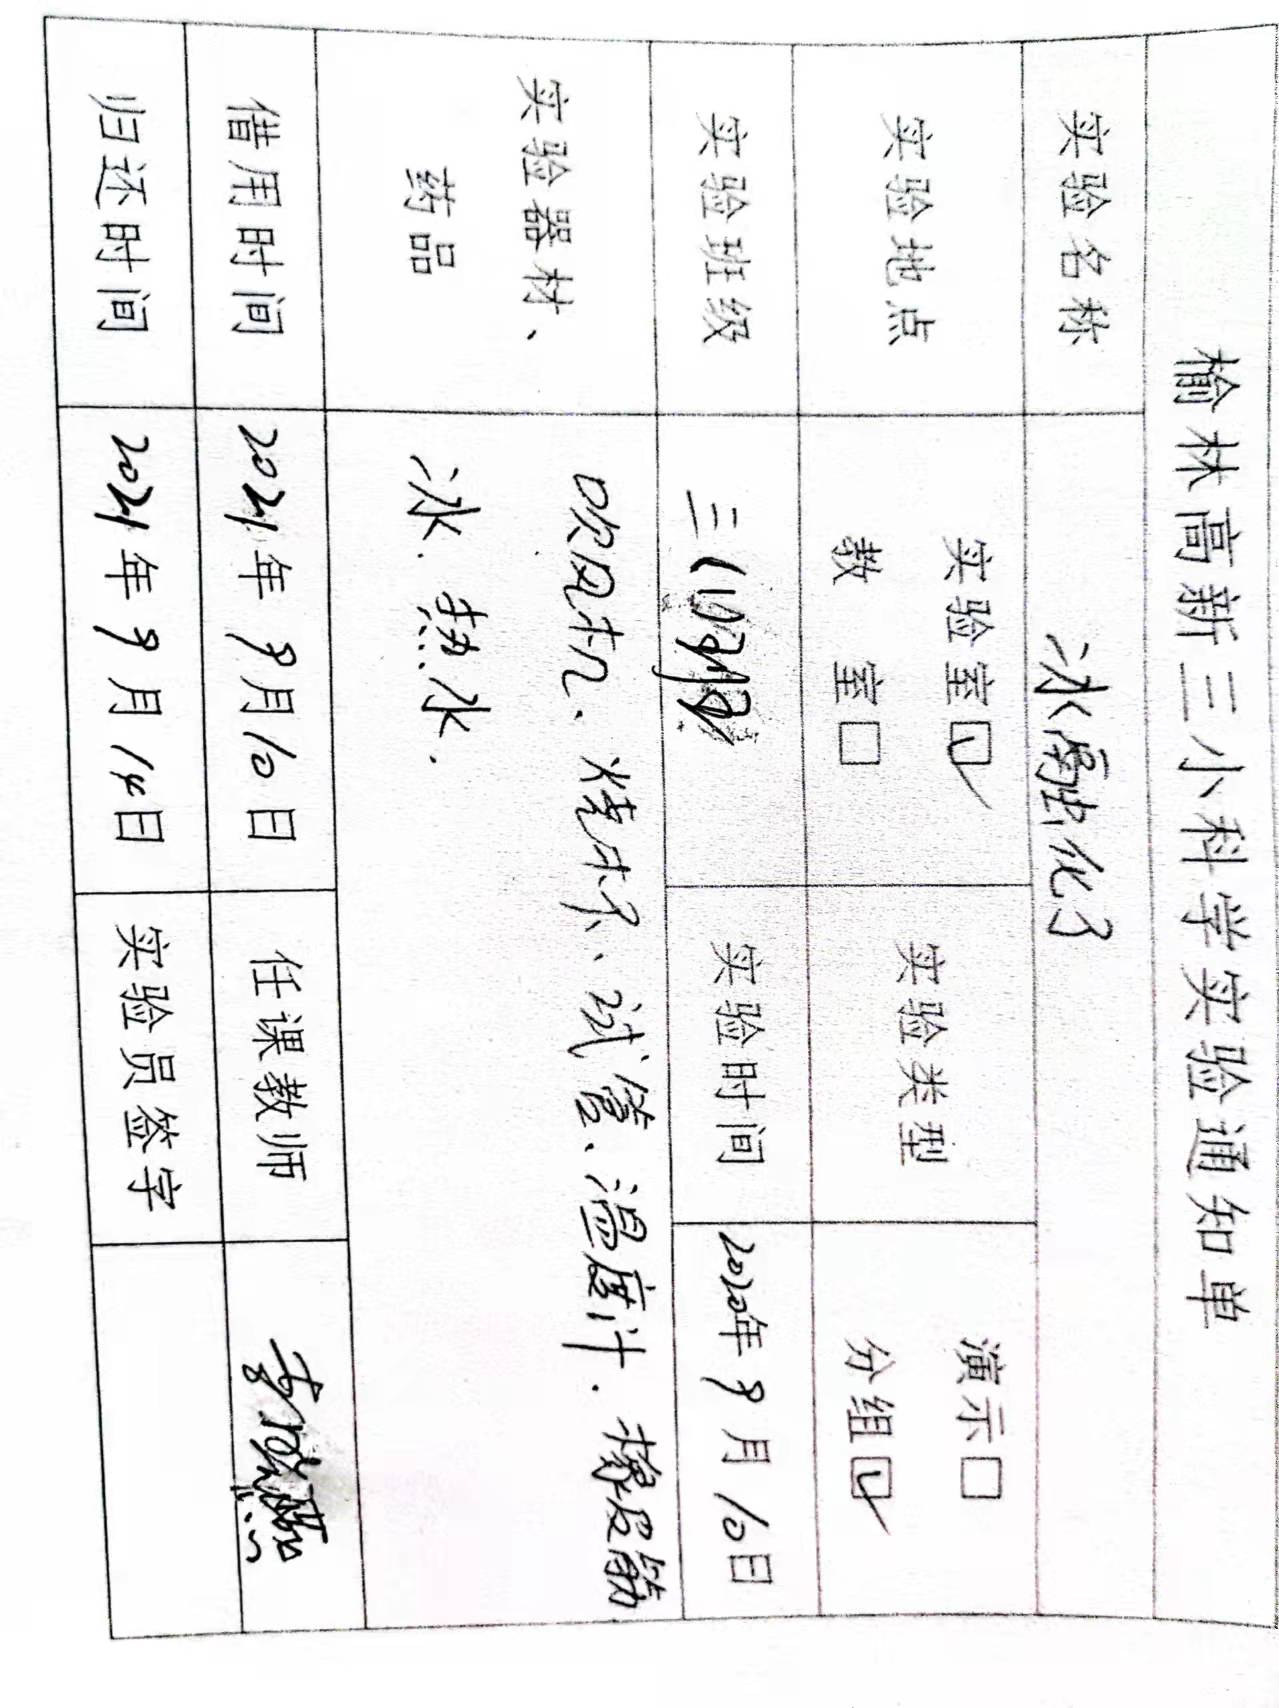 榆林高新三小科学实验通知单
实验名称 冰融化了
实验地点 实验室☑ 教 室□ 实验类型 演示□ 分组☑
实验班级 三(1)班 实验时间 2020年9月10日
实验器材、药品
吹风机、烧杯、试管、温度计、橡皮筋
冰、热水.
借用时间 2021年9月10日 任课教师
归还时间 2021年9月14日 实验员签字